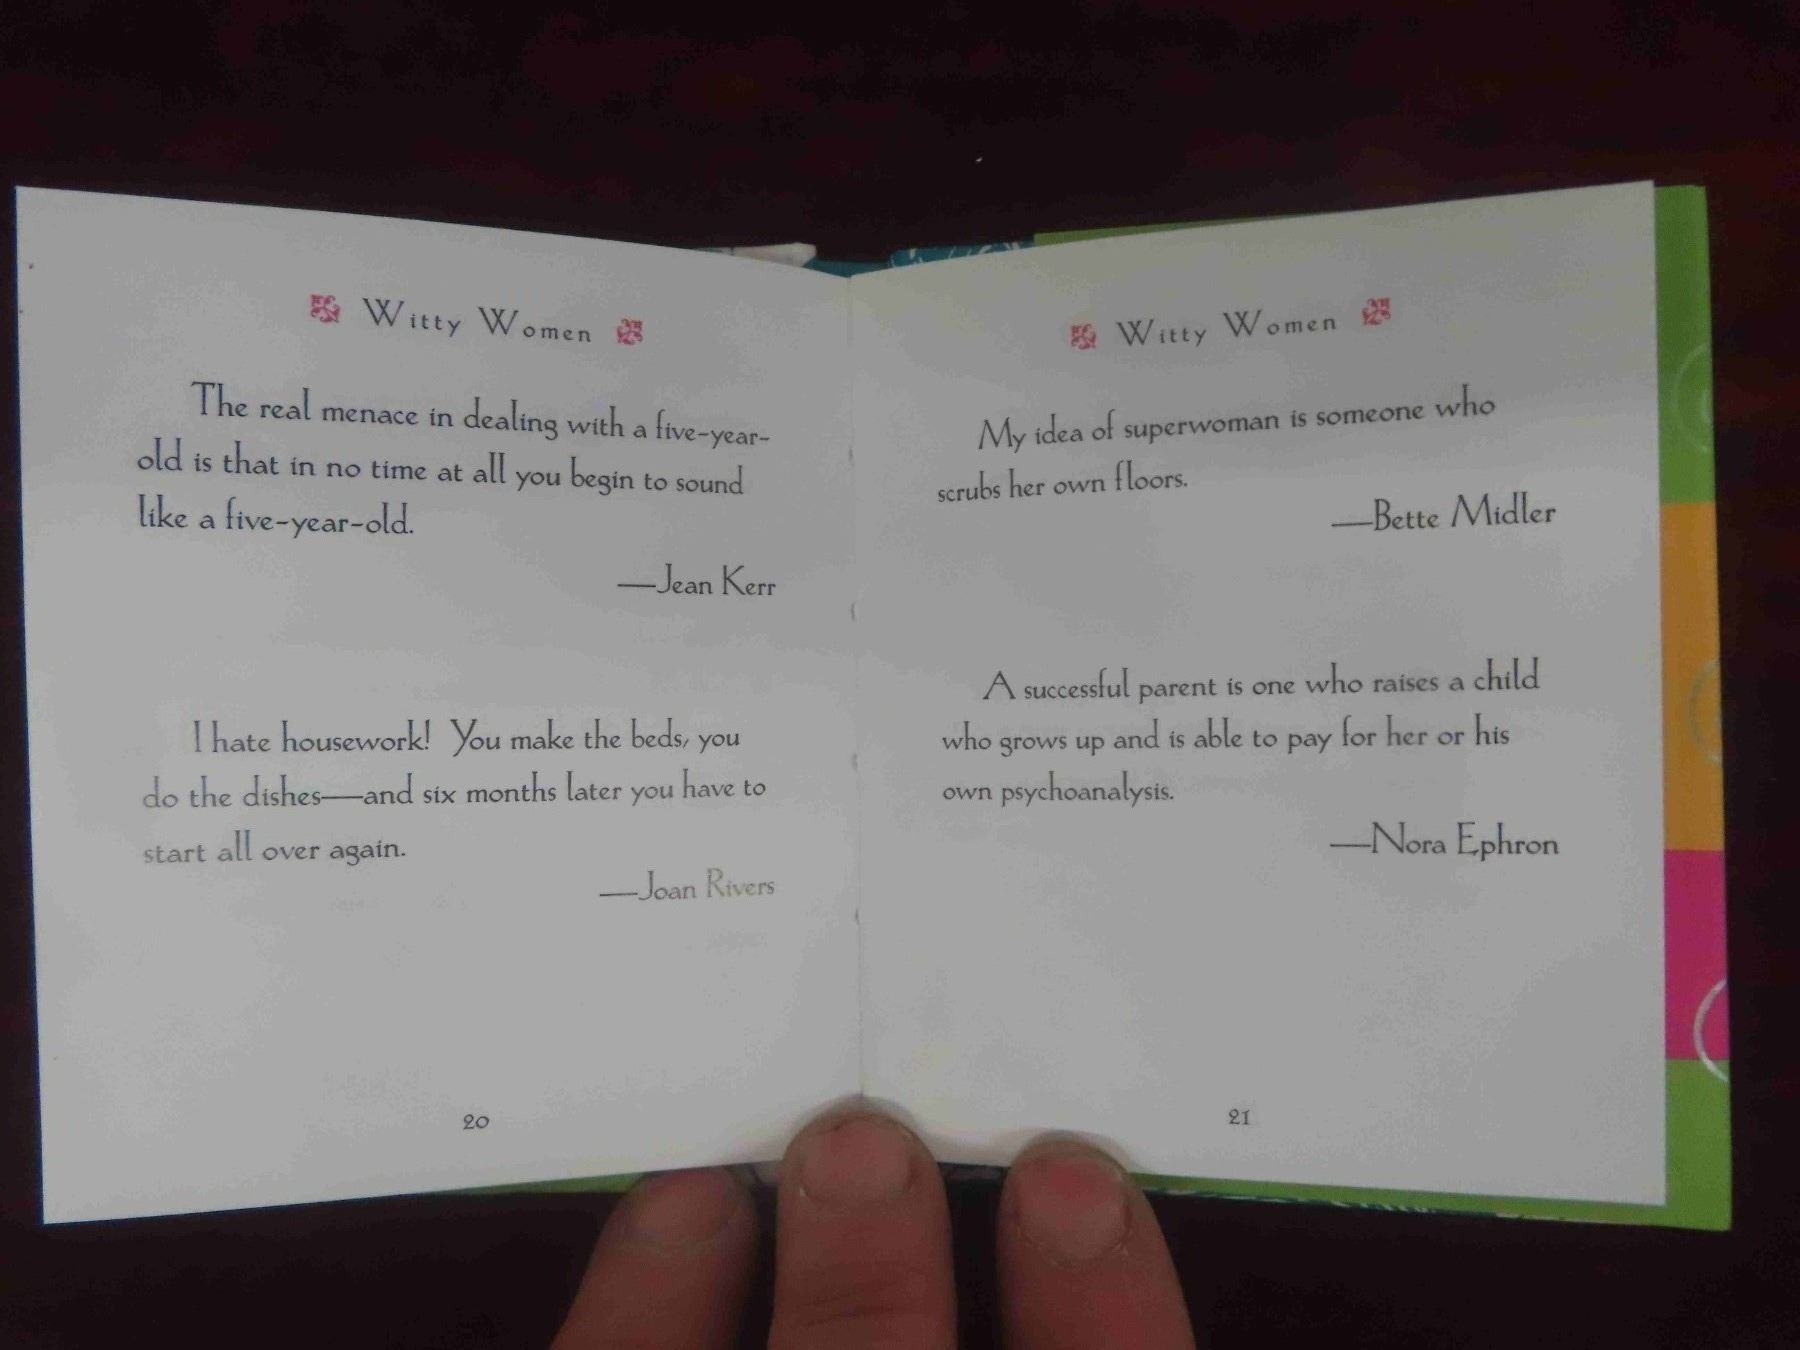 Witty Women
The real menace in dealing with a five-year-
old is that in no time at all you begin to sound
like a five-year-old.
—Jean Kerr
I hate housework! You make the beds, you
do the dishes—and six months later you have to
start all over again.
—Joan Rivers
20
Witty Women
My idea of superwoman is someone who
scrubs her own floors.
—Bette Midler
A successful parent is one who raises a child
who grows up and is able to pay for her or his
own psychoanalysis.
—Nora Ephron
21